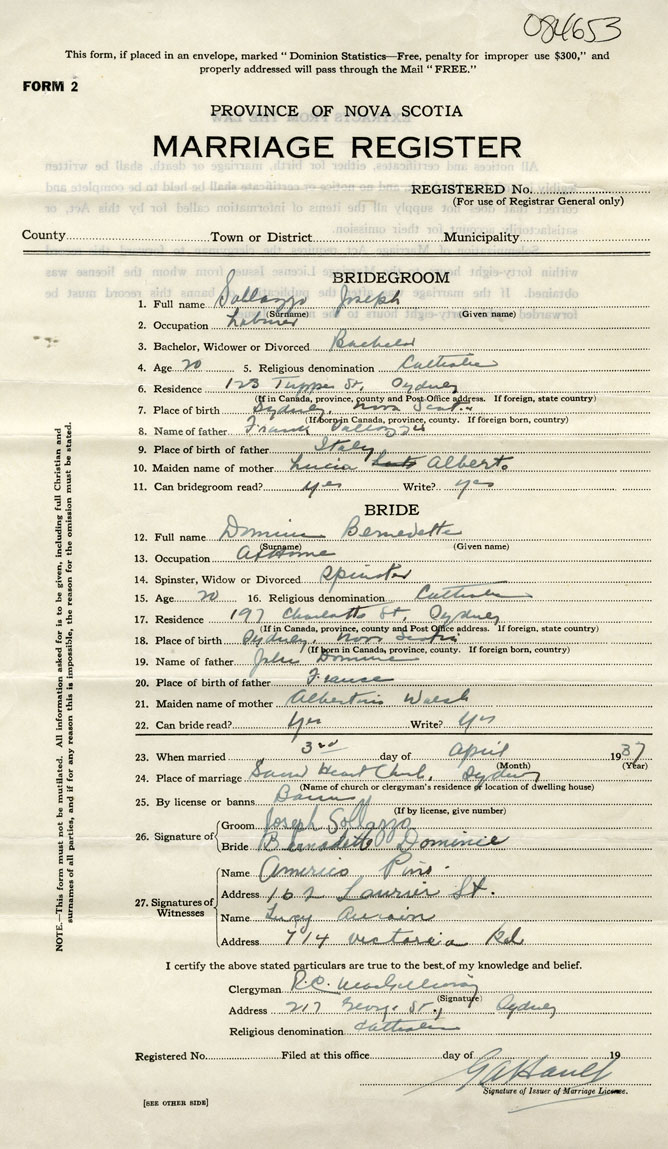 084653
This form, if placed in an envelope, marked "Dominion Statistics—Free, penalty for improper use $300," and
properly addressed will pass through the Mail "FREE."
FORM 2
PROVINCE OF NOVA SCOTIA
MARRIAGE REGISTER
REGISTERED No.
(For use of Registrar General only)
County Town or District Municipality
BRIDEGROOM
1. Full name Sollazzo Joseph
(Surname) (Given name)
2. Occupation Laborer
3. Bachelor, Widower or Divorced Bachelor
4. Age 20 5. Religious denomination Catholic
6. Residence 123 Tupper St. Sydney
(If in Canada, province, county and Post Office address. If foreign, state country)
7. Place of birth Sydney, Nova Scotia
(If born in Canada, province, county. If foreign born, country)
8. Name of father Frank Sollazzo
9. Place of birth of father Italy
10. Maiden name of mother Lucia Alberto
11. Can bridegroom read? yes Write? yes
BRIDE
12. Full name Dominie Bernadette
(Surname) (Given name)
13. Occupation At Home
14. Spinster, Widow or Divorced Spinster
15. Age 20 16. Religious denomination Catholic
17. Residence 197 Charlotte St, Sydney
(If in Canada, province, county and Post Office address. If foreign, state country)
18. Place of birth Sydney, Nova Scotia
(If born in Canada, province, county. If foreign born, country)
19. Name of father John Dominie
20. Place of birth of father France
21. Maiden name of mother Albertine Walsh
22. Can bride read? Yes Write? Yes
23. When married 3rd day of April 1937
(Month) (Year)
24. Place of marriage Sacred Heart Church, Sydney
(Name of church or clergyman's residence or location of dwelling house)
25. By license or banns Banns
(If by license, give number)
26. Signature of Groom Joseph Sollazzo
Bride Bernadette Dominie
27. Signatures of Witnesses Name Americo Pino
Address 162 Laurier St.
Name Lucy
Address 714 Victoria Rd
I certify the above stated particulars are true to the best of my knowledge and belief.
Clergyman R.C. MacGillivray
(Signature)
Address 217 George St., Sydney
Religious denomination Catholic
Registered No. Filed at this office day of 19
Signature of Issuer of Marriage License.
[SEE OTHER SIDE]
NOTE.—This form must not be mutilated. All information asked for is to be given, including full Christian and
surnames of all parties, and if for any reason this is impossible, the reason for the omission must be stated.